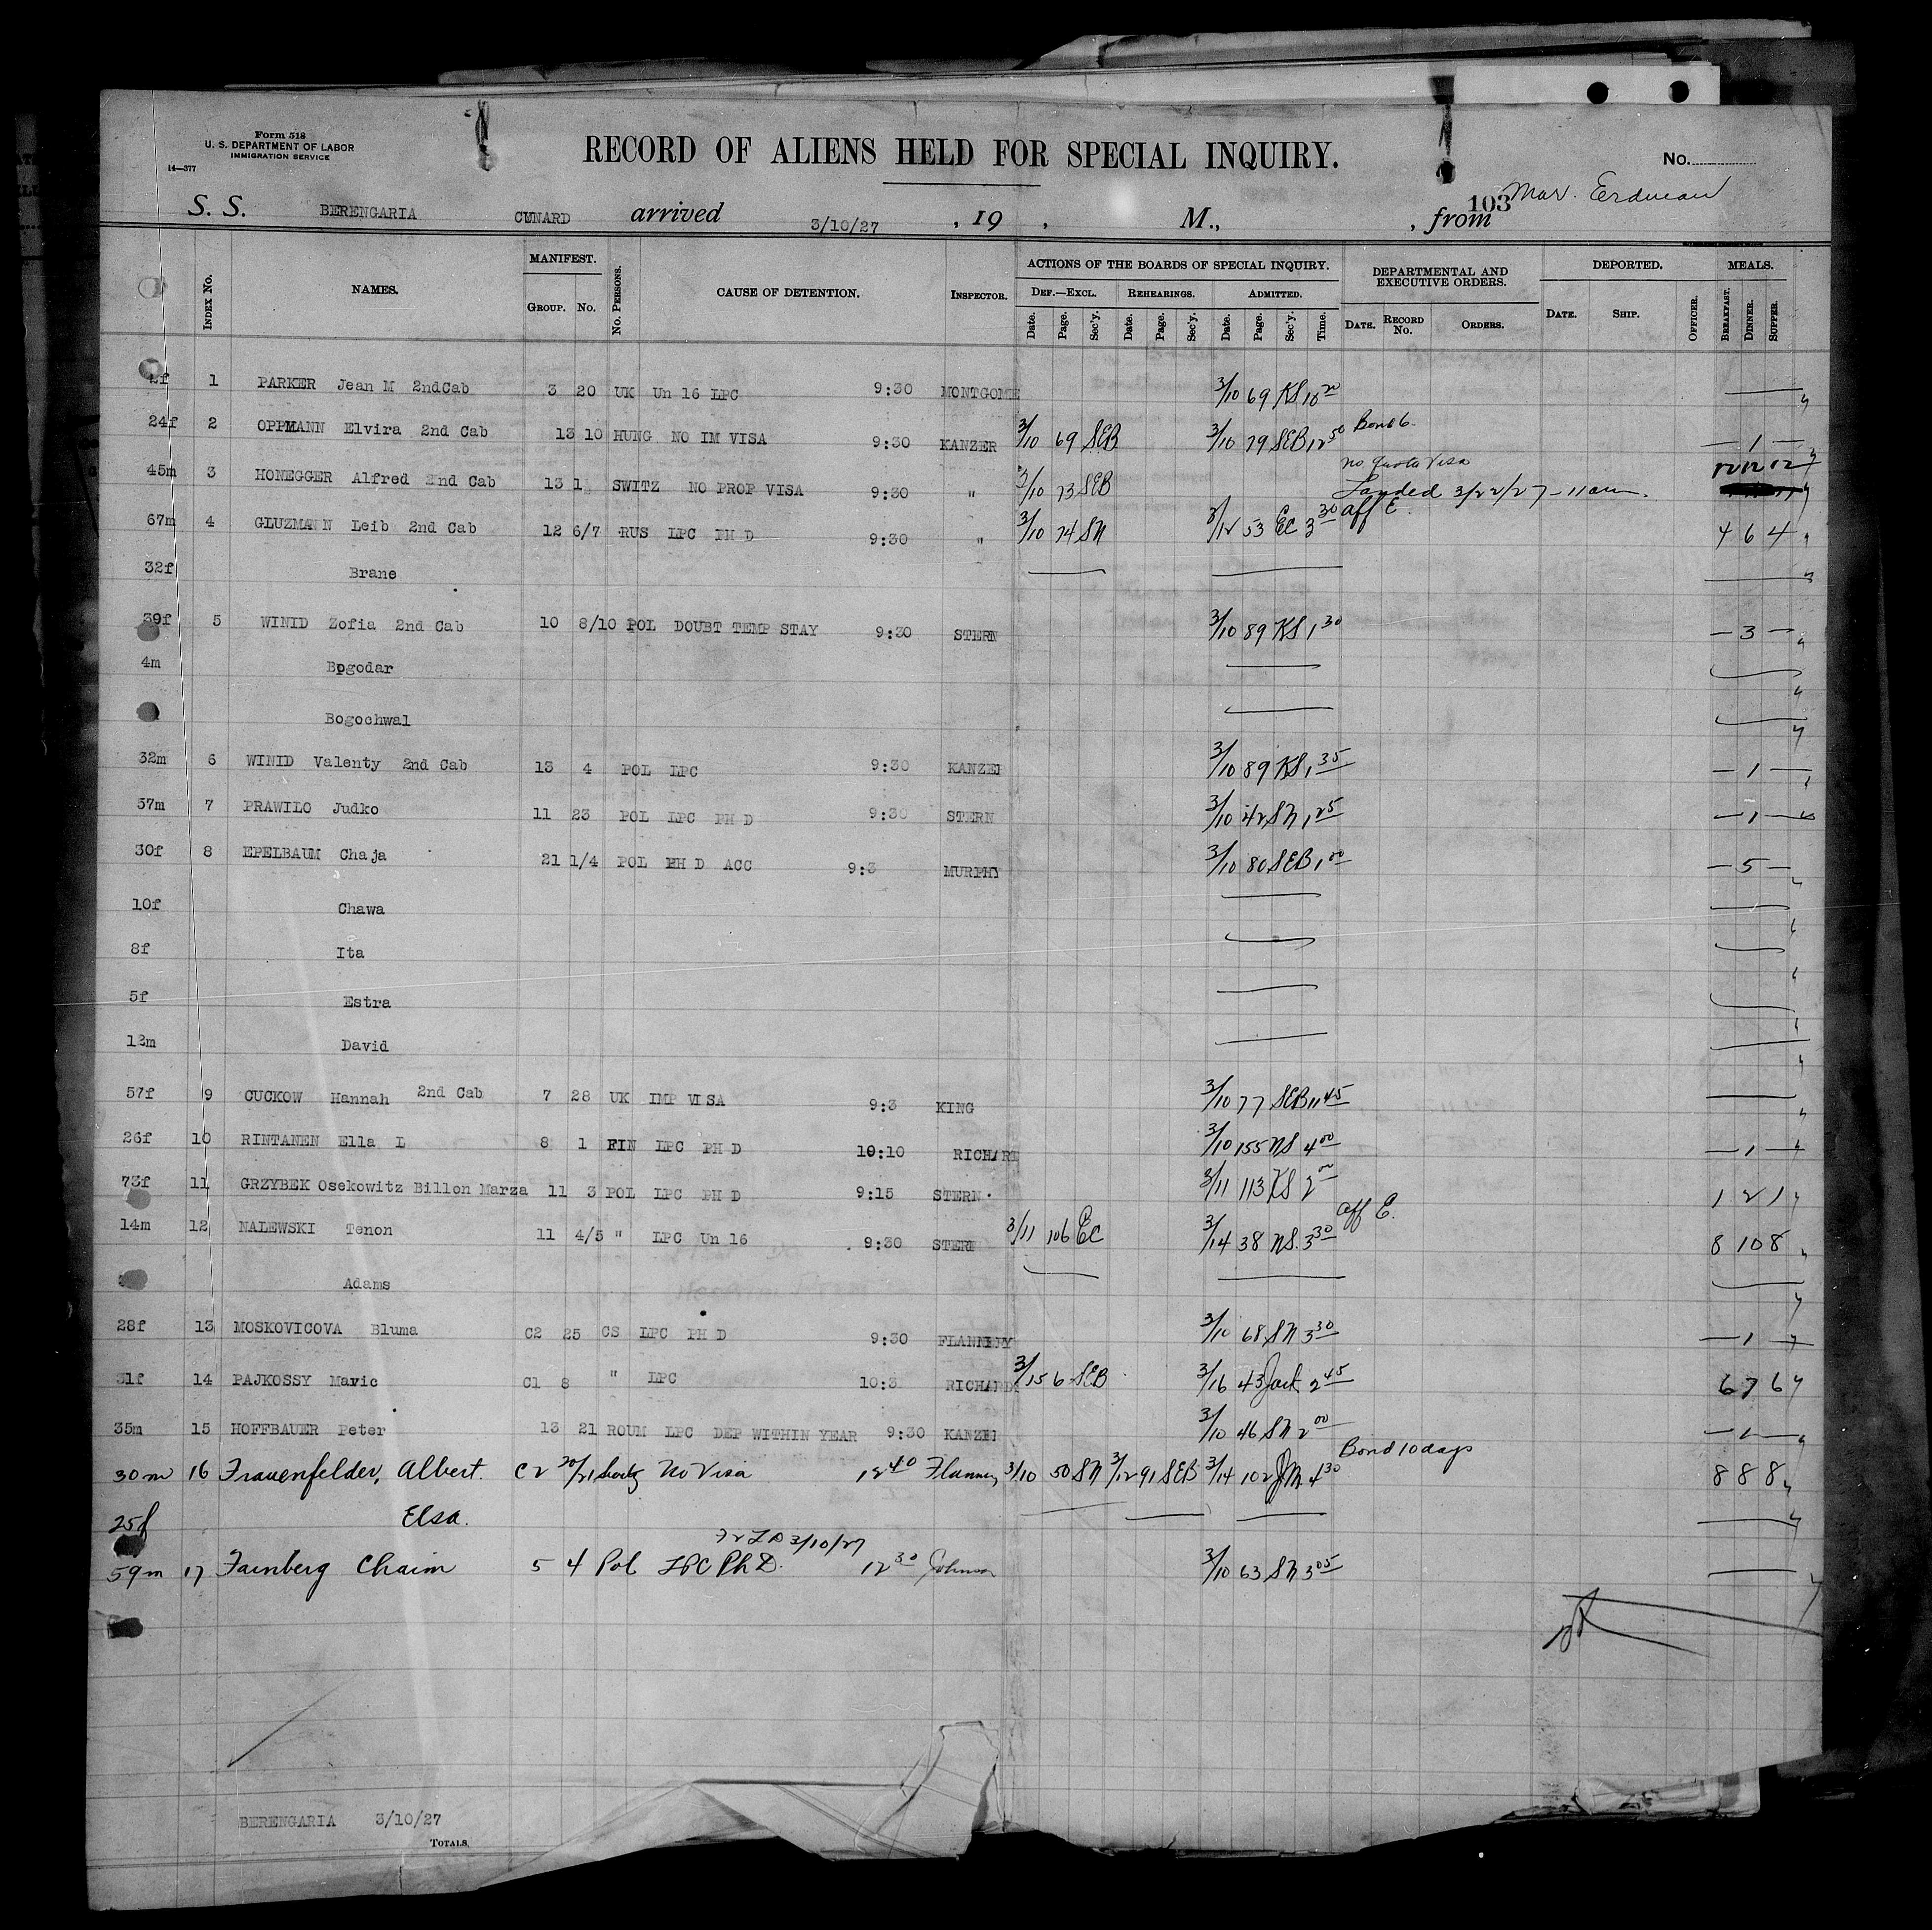 Form 518
U. S. DEPARTMENT OF LABOR
IMMIGRATION SERVICE
14—377
RECORD OF ALIENS HELD FOR SPECIAL INQUIRY.
No.
103 Mar. Erdman
S. S. BERENGARIA CUNARD arrived 3/10/27, 19 , M., , from
INDEX No. NAMES. MANIFEST. GROUP. No. No. PERSONS. CAUSE OF DETENTION. INSPECTOR. ACTIONS OF THE BOARDS OF SPECIAL INQUIRY. DEPARTMENTAL AND EXECUTIVE ORDERS. DEPORTED. MEALS.
DEF.—EXCL. REHEARINGS. ADMITTED.
Date. Page. Sec'y. Date. Page. Sec'y. Date. Page. Sec'y. Time. DATE. RECORD No. ORDERS. DATE. SHIP. OFFICER. BREAKFAST. DINNER. SUPPER.
1 PARKER Jean M 2ndCab 3 20 UK Un 16 LPC 9:30 MONTGOME 3/10 69 KS 10 20
24f 2 OPPMANN Elvira 2nd Cab 13 10 HUNG NO IM VISA 9:30 KANZER 3/10 69 SEB 3/10 79 SEB 12 50 Bond 6. 1
45m 3 HONEGGER Alfred 2nd Cab 13 1 SWITZ NO PROP VISA 9:30 " 3/10 73 SEB no quota visa Landed 3/22/27 - 11 am. 12 12 12
67m 4 GLUZMANN Leib 2nd Cab 12 6/7 RUS LPC PH D 9:30 " 3/10 74 SN 3/12 53 EC 3 30 aff E. 4 6 4
32f Brane
39f 5 WINID Zofia 2nd Cab 10 8/10 POL DOUBT TEMP STAY 9:30 STERN 3/10 89 KS 1 30 3
4m Bogodar
Bogochwal
32m 6 WINID Valenty 2nd Cab 13 4 POL LPC 9:30 KANZER 3/10 89 KS 1 35 1
57m 7 PRAWILO Judko 11 23 POL LPC PH D 9:30 STERN 3/10 42 SN 1 25 1
30f 8 EPELBAUM Chaja 21 1/4 POL PH D ACC 9:3 MURPHY 3/10 80 SEB 1 00 5
10f Chawa
8f Ita
5f Estra
12m David
57f 9 CUCKOW Hannah 2nd Cab 7 28 UK IMP VISA 9:3 KING 3/10 77 SEB 11 45
26f 10 RINTANEN Ella L 8 1 FIN LPC PH D 10:10 RICHARD 3/10 155 NS 4 00 1
73f 11 GRZYBEK Osekowitz Billon Marza 11 3 POL LPC PH D 9:15 STERN 3/11 113 KS 2 00 1 2 1
14m 12 NALEWSKI Tenon 11 4/5 " LPC Un 16 9:30 STERN 3/11 106 EC 3/14 38 NS. 3 30 aff E. 8 10 8
Adams
28f 13 MOSKOVICOVA Bluma C2 25 CS LPC PH D 9:30 FLANNERY 3/10 68 SN 3 30 1
31f 14 PAJKOSSY Mavic C1 8 " LPC 10:3 RICHARDS 3/15 6 SEB 3/16 43 Jack 2 45 6 7 6
35m 15 HOFFBAUER Peter 13 21 ROUM LPC DEP WITHIN YEAR 9:30 KANZER 3/10 46 SN 2 00 1
30m 16 Frauenfelder, Albert. C2 20/21 Switz No Visa 12 40 Flannery 3/10 50 SN 3/12 91 SEB 3/14 102 JM. 4 30 Bond 10 days 8 8 8
25f Elsa.
59m 17 Fainberg Chaim 5 4 Pol LPC Ph D. 3/10/27 12 30 Johnson 3/10 63 SN 3 05
BERENGARIA 3/10/27
TOTALS.